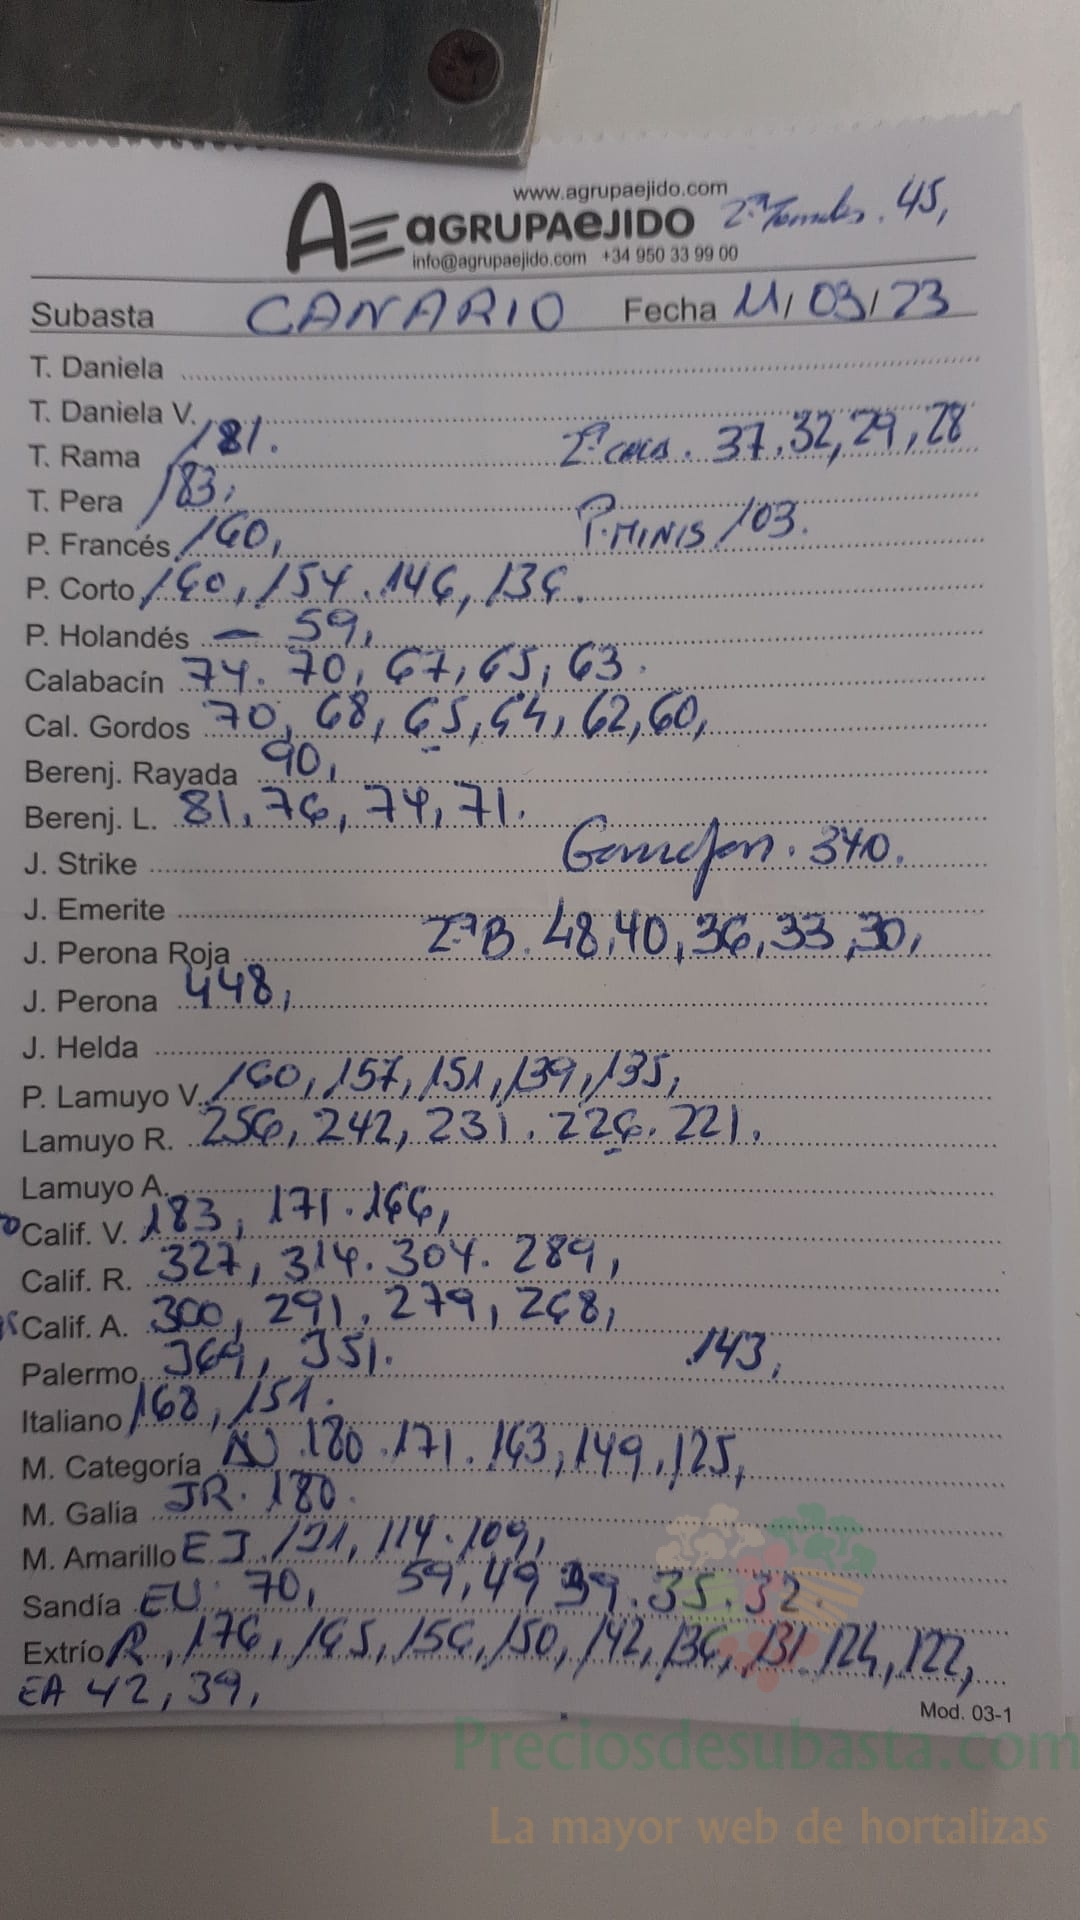 www.agrupaejido.com
AE aGRUPAeJIDO 2ª 45,
info@agrupaejido.com +34 950 33 99 00
Subasta CANARIO Fecha 11/03/23
T. Daniela
T. Daniela V.
T. Rama 181. 2ª 37, 32, 29, 28
T. Pera 183,
P. Francés 160, P. MINIS 103.
P. Corto 160, 154. 146, 136.
P. Holandés — 59,
Calabacín 74. 70, 67, 65, 63.
Cal. Gordos 70, 68, 65, 64, 62, 60,
Berenj. Rayada 90,
Berenj. L. 81, 76, 74, 71.
J. Strike 340.
J. Emerite
J. Perona Roja 2ªB. 48, 40, 36, 33, 30,
J. Perona 448,
J. Helda
P. Lamuyo V. 160, 157, 151, 139, 135,
Lamuyo R. 256, 242, 231. 226. 221.
Lamuyo A.
Calif. V. 183, 171. 166,
Calif. R. 327, 314. 304. 289,
Calif. A. 300, 291, 279, 268,
Palermo 369, 351. 143,
Italiano 168, 151.
M. Categoría N 180. 171. 163, 149, 125,
M. Galia JR. 180.
M. Amarillo EJ 121, 114. 109,
Sandía EU 70, 59, 49 39. 35. 32.
Extrío R, 176, 165, 156, 150, 142, 136, 131. 124, 122,
EA 42, 39,
Mod. 03-1
Preciosdesubasta.com
La mayor web de hortalizas